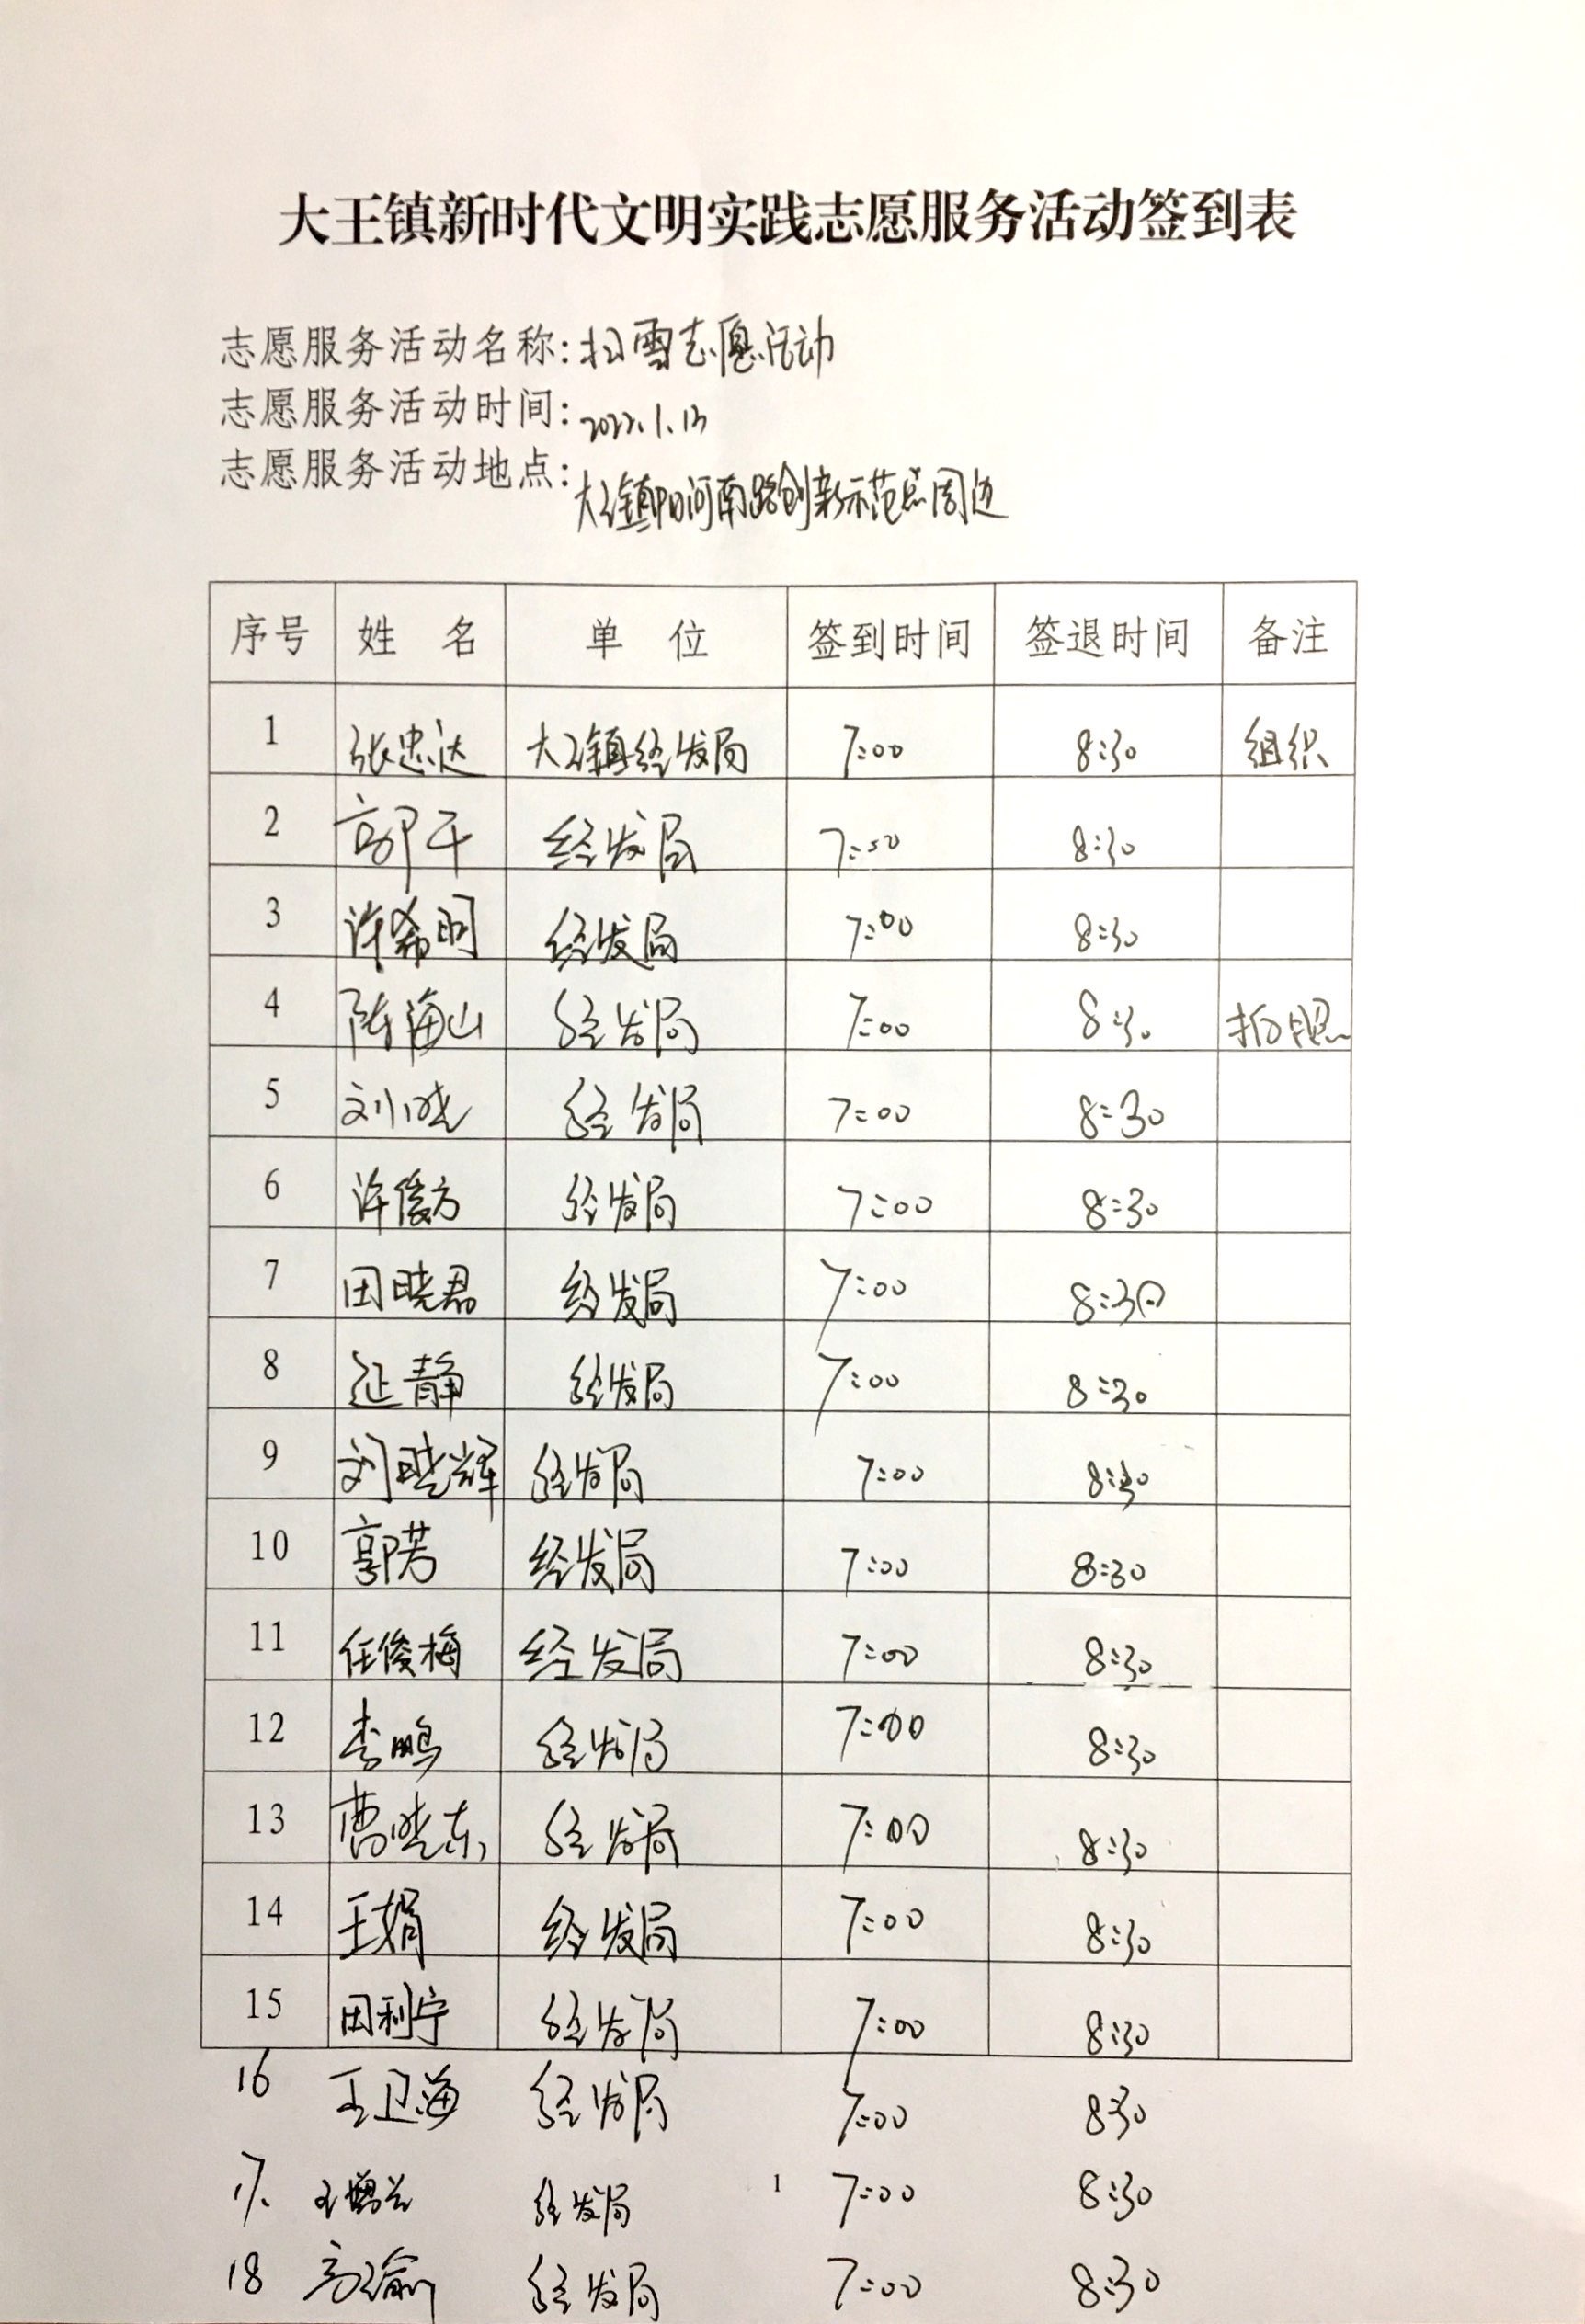 大王镇新时代文明实践志愿服务活动签到表
志愿服务活动名称:扫雪志愿活动
志愿服务活动时间:2022.1.13
志愿服务活动地点:大王镇阳河南路创新示范点周边
序号 姓 名 单 位 签到时间 签退时间 备注
1 张忠达 大王镇经发局 7:00 8:30 组织
2 郭平 经发局 7:00 8:30
3 许希明 经发局 7:00 8:30
4 陈海山 经发局 7:00 8:30 拍照
5 刘晓 经发局 7:00 8:30
6 许俊方 经发局 7:00 8:30
7 田晓君 经发局 7:00 8:30
8 延静 经发局 7:00 8:30
9 刘晓辉 经发局 7:00 8:30
10 郭芳 经发局 7:00 8:30
11 任俊梅 经发局 7:00 8:30
12 李鹏 经发局 7:00 8:30
13 曹晓东 经发局 7:00 8:30
14 王娟 经发局 7:00 8:30
15 田利宁 经发局 7:00 8:30
16 王卫海 经发局 7:00 8:30
17. 经发局 7:00 8:30
1
18 高瑜 经发局 7:00 8:30